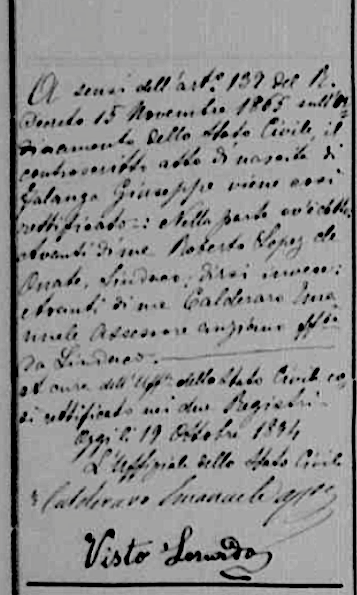 A sensi dell'art.º 139 del R.
Decreto 15 Novembre 1865 sull'Or=
dinamento dello Stato Civile, il
controscritto atto di nascita di
Falanga Giuseppe viene così
rettificato: Nella parte ov'è detto
avanti di me Roberto Lopez de
Onate, Sindaco, dirsi invece:
Avanti di me Calderaro Ema
nuele Assessore anziano ff.
da Sindaco.
A cura dell'Uff. dello Stato Civile co
sì rettificato nei due Registri
Oggi li 19 Ottobre 1894
L'Uffiziale dello Stato Civile
Calderaro Emanuele
Visto